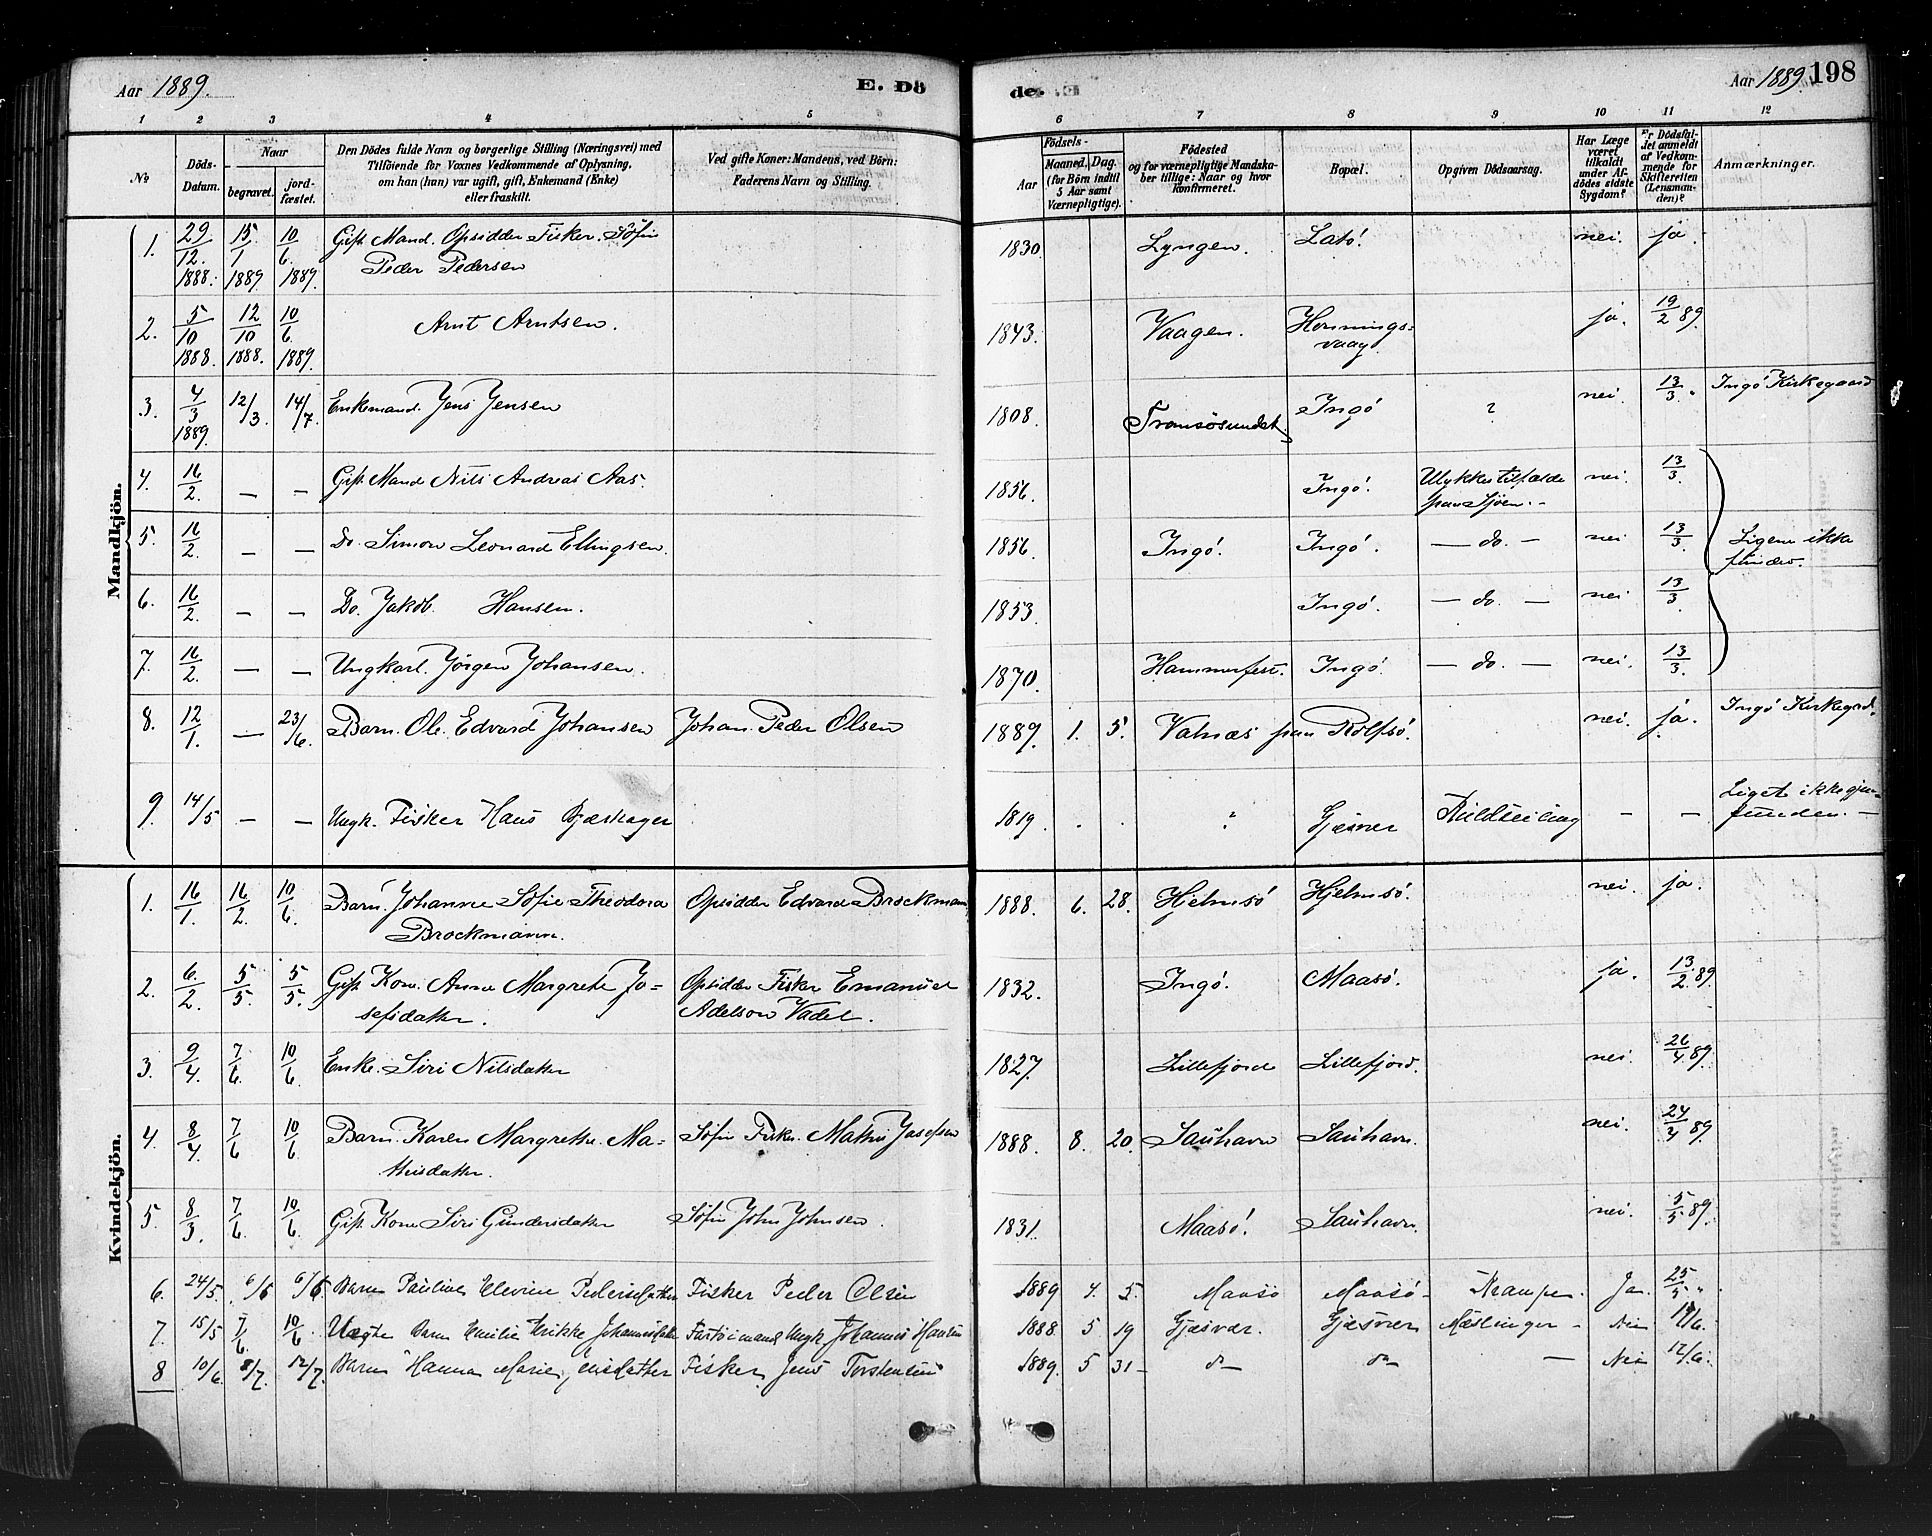 Aar 1889.
E. Dö
de.
Aar 1889. 198
1 2 3 4 5 6 7 8 9 10 11 12
No
Döds-Datum.
Naar
begravet.
jord-fæstet.
Den Dödes fulde Navn og borgerlige Stilling (Næringsvei) med
Tilföiende for Voxnes Vedkommende af Oplysning,
om han (hun) var ugift, gift, Enkemand (Enke)
eller fraskilt.
Ved gifte Koner: Mandens, ved Börn:
Faderens Navn og Stilling.
Födsels-
Aar
Maaned. Dag.
(for Börn indtil
5 Aar samt
Værnepligtige).
Födested
og for værnepligtige Mandska-
ber tillige: Naar og hvor
konfirmeret.
Bopæl.
Opgiven Dödsaarsag.
Har Læge
været
tilkaldt
under Af-
dödes sidste
Sygdom?
Er Dödsfal-
det anmeldt
af Vedkom-
mende for
Skifteretten
(Lensman-
den)?
Anmærkninger.
Mandkjön.
1. 29/12. 1888. 15/1 1889 10/6. 1889. Gift Mand. Opsidder Fisker. Söfin 1830. Lyngen. Latö. nei. ja.
Peder Pedersen
2. 5/10 1888. 12/10 1888. 10/6. 1889. Arnt Arntsen. 1843. Vaagen. Honnings- ja. 19/2 89.
vaag.
3. 4/3 1889. 12/3. 14/7. Enkemand. Jens Jensen 1808. Tromsösundet Ingö ? nei. 13/3. Ingö Kirkegaard
4. 16/2. — — Gift Mand Nils Andreas Aas. 1856. Ingö. Ulykkestilfælde nei. 13/3.
paa Sjöen. -
5. 16/2. — — Do. Simon Leonard Ellingsen. 1856. Ingö. Ingö. — do. — nei 13/3. Ligene ikke
fundne.
6. 16/2. — — Do. Jakob Hansen. 1853. Ingö. — do. — nei 13/3.
7. 16/2. — — Ungkarl. Jörgen Johansen. 1870. Hammerfest. Ingö. — do. — nei. 13/3.
8. 12/1. — 23/6. Barn. Ole Edvard Johansen Johan Peder Olsen 1889. 1. 5. Valnæs paa Rolfsö. nei. ja. Ingö Kirkegrd.
9. 14/5 — — Ungk. Fisker Hans Bjæskager 1819. ? Gjesvær Kuldseiling — — Liget ikke gjen-
funden. —
Kvindekjön.
1. 16/1. 16/2. 10/6. Barn. Johanne Sofie Theodora Opsidder Edvard Brockmann 1888. 6. 28. Hjelmsö Hjelmsö. nei. ja.
Brockmann.
2. 6./2. 5/5. 5/5. Gift Kone. Anne Margrete Jo- Opsidder Fisker Emanuel 1832. Ingö. Maasö. ja. 13/2. 89.
sefsdatter. Adelson Vadel.
3. 9/4. 7/6. 10/6. Enke. Siri Nilsdatter 1827. Lillefjord Lillefjord. nei. 26/4. 89.
4. 8/4. 7/6 10/6 Barn. Karen Margrethe Ma- Söfin Fisker. Mathis Josefsen 1888. 8. 20. Sauhavn Sauhavn. nei. 24/4 89.
thisdatter.
5. 8/3. 7/6. 10/6. Gift Kone Siri Gundersdatter Söfin John Johnsen. 1831. Maasö. Sauhavn. nei. 5/5. 89.
6. 24/5. 6/6 6/6 Barn Pauline Elevine Pedersdatter Fisker Peder Olsen 1889 4. 5. Maasö Maasö- Krampe. Ja. 25/5 "
7. 15/5 7/6. 10/6. Uægte Barn Emilie Erikke Johannesdatter Fartöimand Ungk. Johannes Hansen 1888. 5 19 Gjesvær. Gjesvær Mæslinger — Nei 19/6.
8 10/6. 8/7. 12/7. Barn Hanna Marie Jensdatter Fisker Jens Torstensen 1889. 5 31 — do — do — — Nei 12/6.